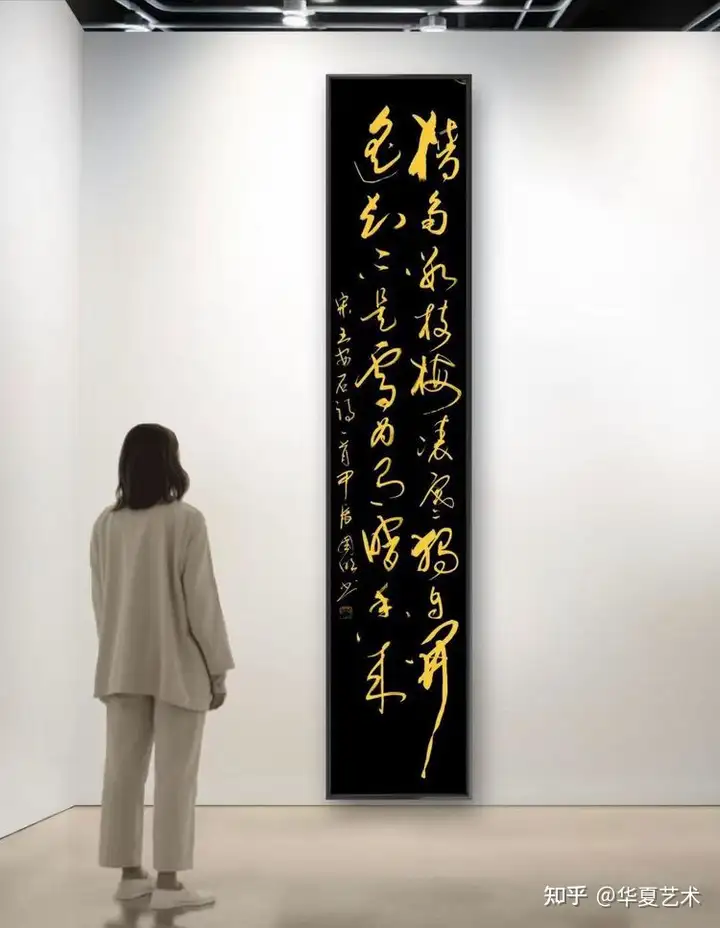 墙角数枝梅凌寒独自開
遥知不是雪为有暗香来
宋王安石诗一首甲辰国书
知乎 @华夏艺术